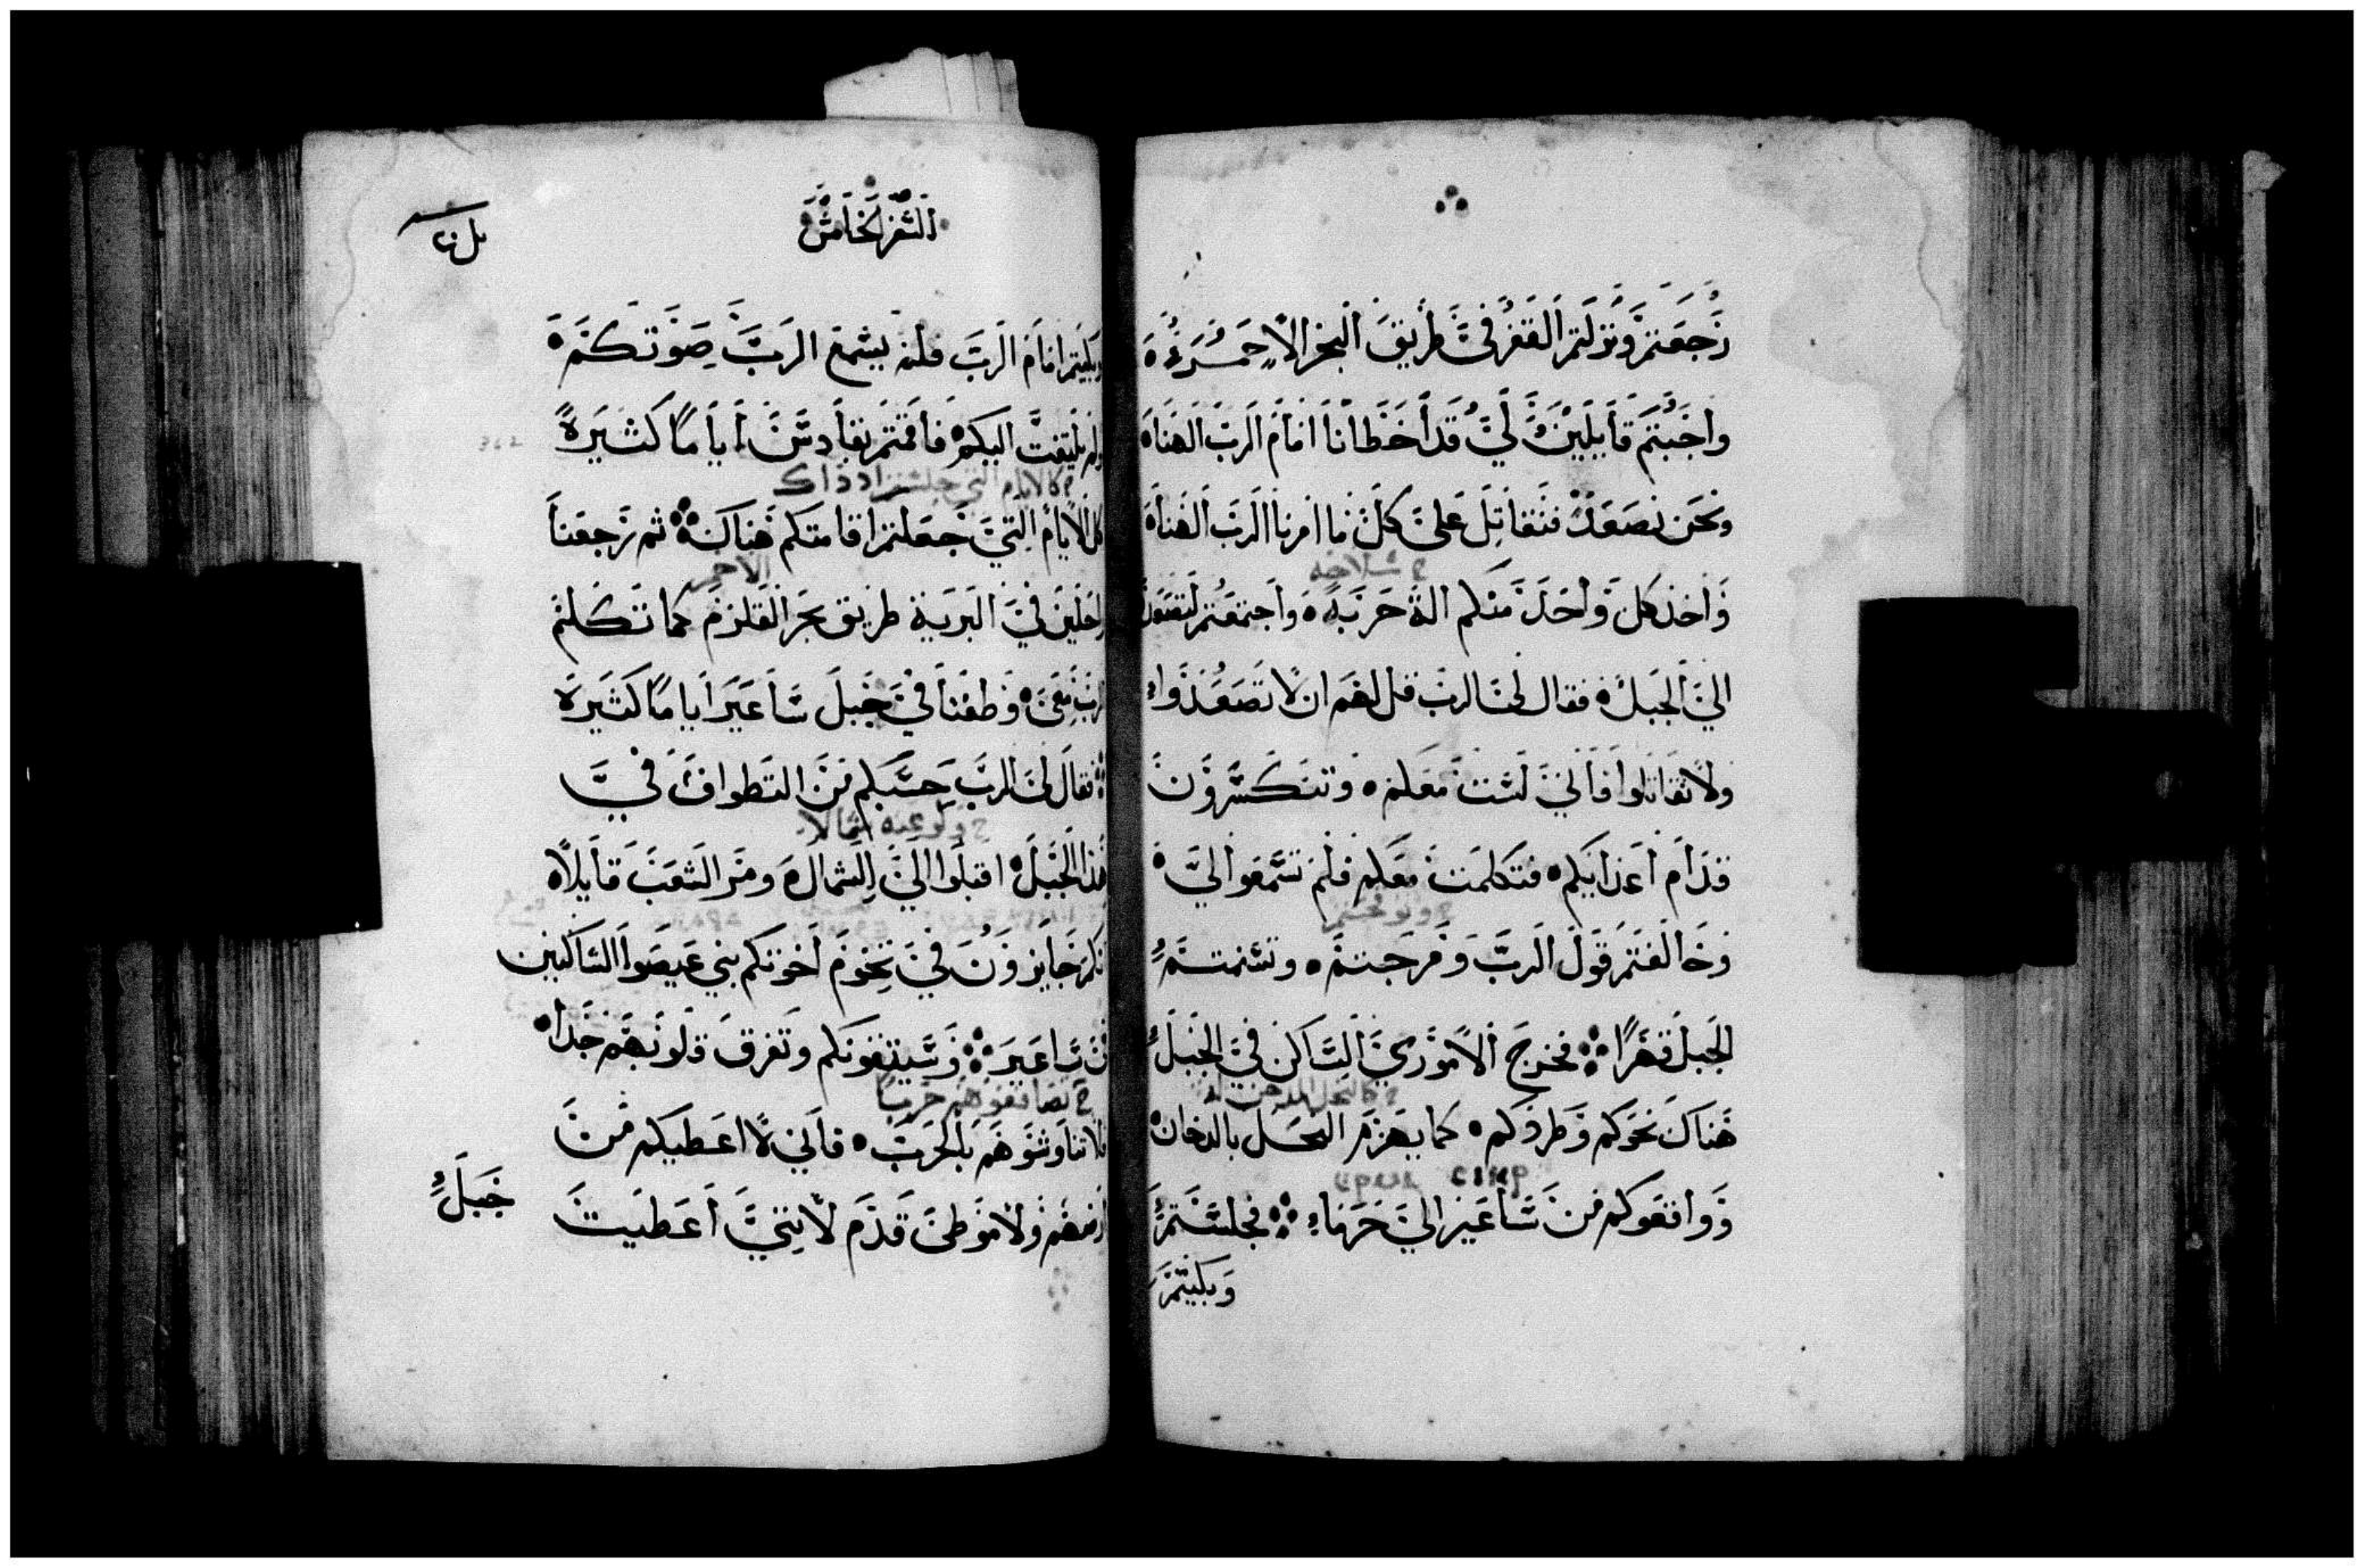 رجعتم ونزلتم القفر في طريق البحر الاحمر
واجبتم قايلين لي قد اخطانا امام الرب الهنا
ونحن نصعد فنقاتل على كل ما امرنا الرب الهنا
واخذ كل واحد منكم الة حربه واجتمعتم لتصعدوا
الي الجبل فقال لي الرب قل لهم ان لا تصعدوا
ولا تقاتلوا فاني لست معكم وتنكسرون
قدام اعدايكم فتكلمت معكم فلم تسمعوا لي
وخالفتم قول الرب
الجبل قهرا فخرج الاموري الساكن في الجبل
هناك نحوكم وطردكم كما يهزم النحل بالدخان
وواقعوكم من ساعير الي حرما فجلستم
وبكيتم
السفر الخامس
وبكيتم امام الرب فلم يسمع الرب صوتكم
ولم يلتفت اليكم فاقمتم بقادس اياما كثيرة
ح كالايام التي جلستم اذ ذاك
كل الايام التي جعلتم اقامتكم هناك ثم رجعنا
الاحمر
راحلين في البرية طريق بحر القلزم كما تكلم
الرب معي وطفنا في جبل ساعير اياما كثيرة
فقال لي الرب حسبكم من التطواف في
هذا الجبل اقبلوا الي الشمال ومر الشعب قايلا
انكم جايزون في تخوم اخوتكم بني عيصوا الساكنين
في ساعير وسيتقونكم وتفرق قلوبهم جدا
فلا تناوشوهم بالحرب فاني لا اعطيكم من
ارضهم ولا موطى قدم لانني اعطيت
جبل